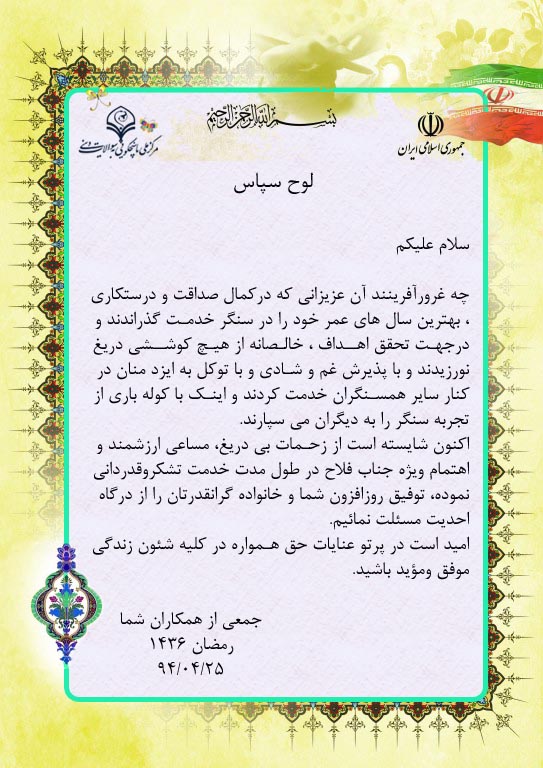 بسم الله الرحمن الرحیم
جمهوری اسلامی ایران
مرکز ملی پاسخگویی به سوالات دینی
لوح سپاس
سلام علیکم
چه غرورآفرینند آن عزیزانی که درکمال صداقت و درستکاری
، بهترین سال های عمر خود را در سنگر خدمت گذراندند و
درجهت تحقق اهداف ، خالصانه از هیچ کوششی دریغ
نورزیدند و با پذیرش غم و شادی و با توکل به ایزد منان در
کنار سایر همسنگران خدمت کردند و اینک با کوله باری از
تجربه سنگر را به دیگران می سپارند.
اکنون شایسته است از زحمات بی دریغ، مساعی ارزشمند و
اهتمام ویژه جناب فلاح در طول مدت خدمت تشکروقدردانی
نموده، توفیق روزافزون شما و خانواده گرانقدرتان را از درگاه
احدیت مسئلت نمائیم.
امید است در پرتو عنایات حق همواره در کلیه شئون زندگی
موفق ومؤید باشید.
جمعی از همکاران شما
رمضان ۱۴۳۶
۹۴/۰۴/۲۵